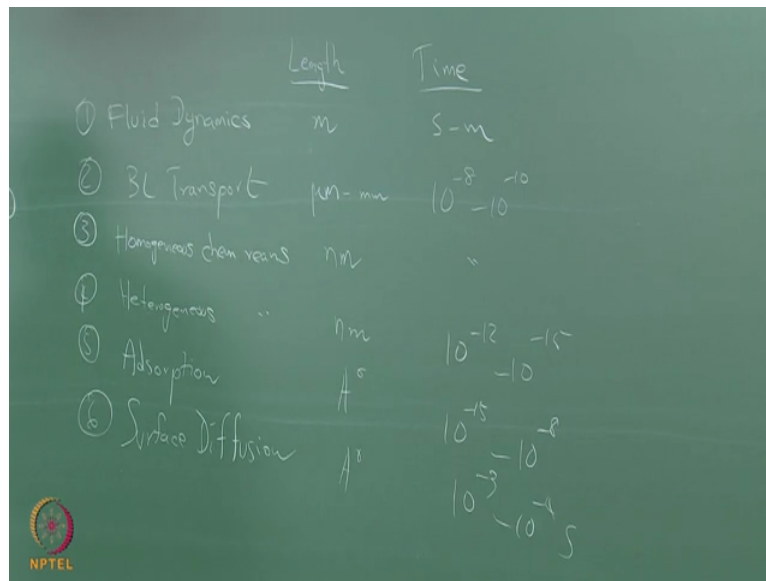 Length Time
① Fluid Dynamics m s-m
② BL Transport μm-mm 10⁻⁸-10⁻¹⁰
③ Homogeneous chem reans nm "
④ Heterogeneous " nm 10⁻¹² -10⁻¹⁵
⑤ Adsorption A° 10⁻¹⁵ -10⁻⁸
⑥ Surface Diffusion A° 10⁻³ -10⁻⁴ s
NPTEL